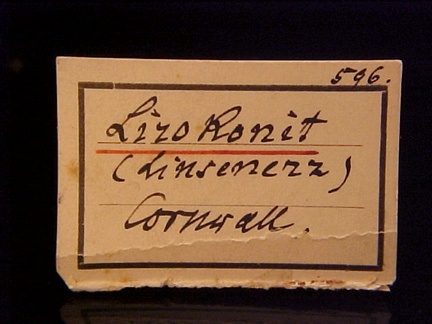 596.
Lirokonit
(Linsenerz)
Cornwall.